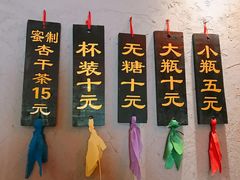 蜜制
杏干茶15元
杯装十元
无糖十元
大瓶十元
小瓶五元